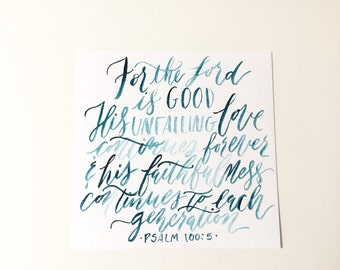 For the Lord
is GOOD
His UNFAILING love
continues forever
& his faithfulNess
continues to each
generation
·PSALM 100:5·